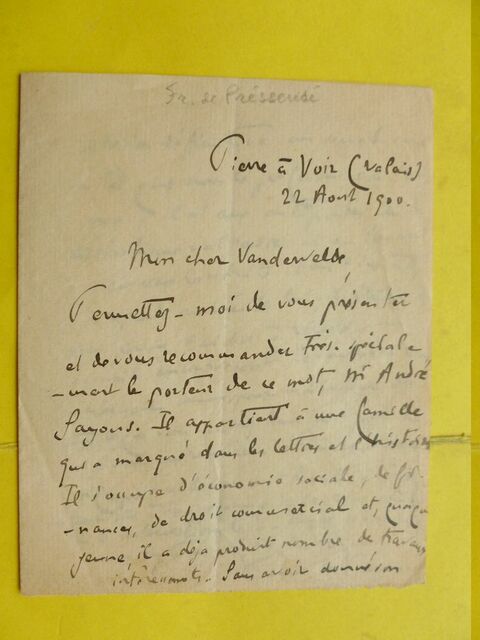 Fr. de Préssensé
Pierre à Voir (Valais)
22 Août 1900.
Mon cher Vandervelde,
Permettez-moi de vous présenter
et de vous recommander très spéciale
-ment le porteur de ce mot, Mr André
Sayous. Il appartient à une famille
qui a marqué dans les lettres et l'histoire
Il s'occupe d'économie sociale, de fi-
-nances, de droit commercial et, quoique
jeune, il a déjà produit nombre de travaux
intéressants. Sans avoir donné son